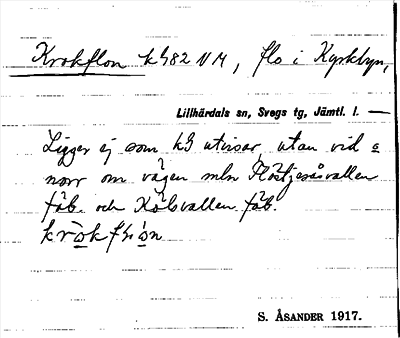 Krokflon kS82 NM, flo i Kyrkbyn,
Lillhärdals sn, Svegs tg, Jämtl. l.
Ligger ej som kS utvisar utan vid o
norr om vägen mln Flötjesåsvallen
fäb. och Kölsvallen fäb.
S. ÅSANDER 1917.